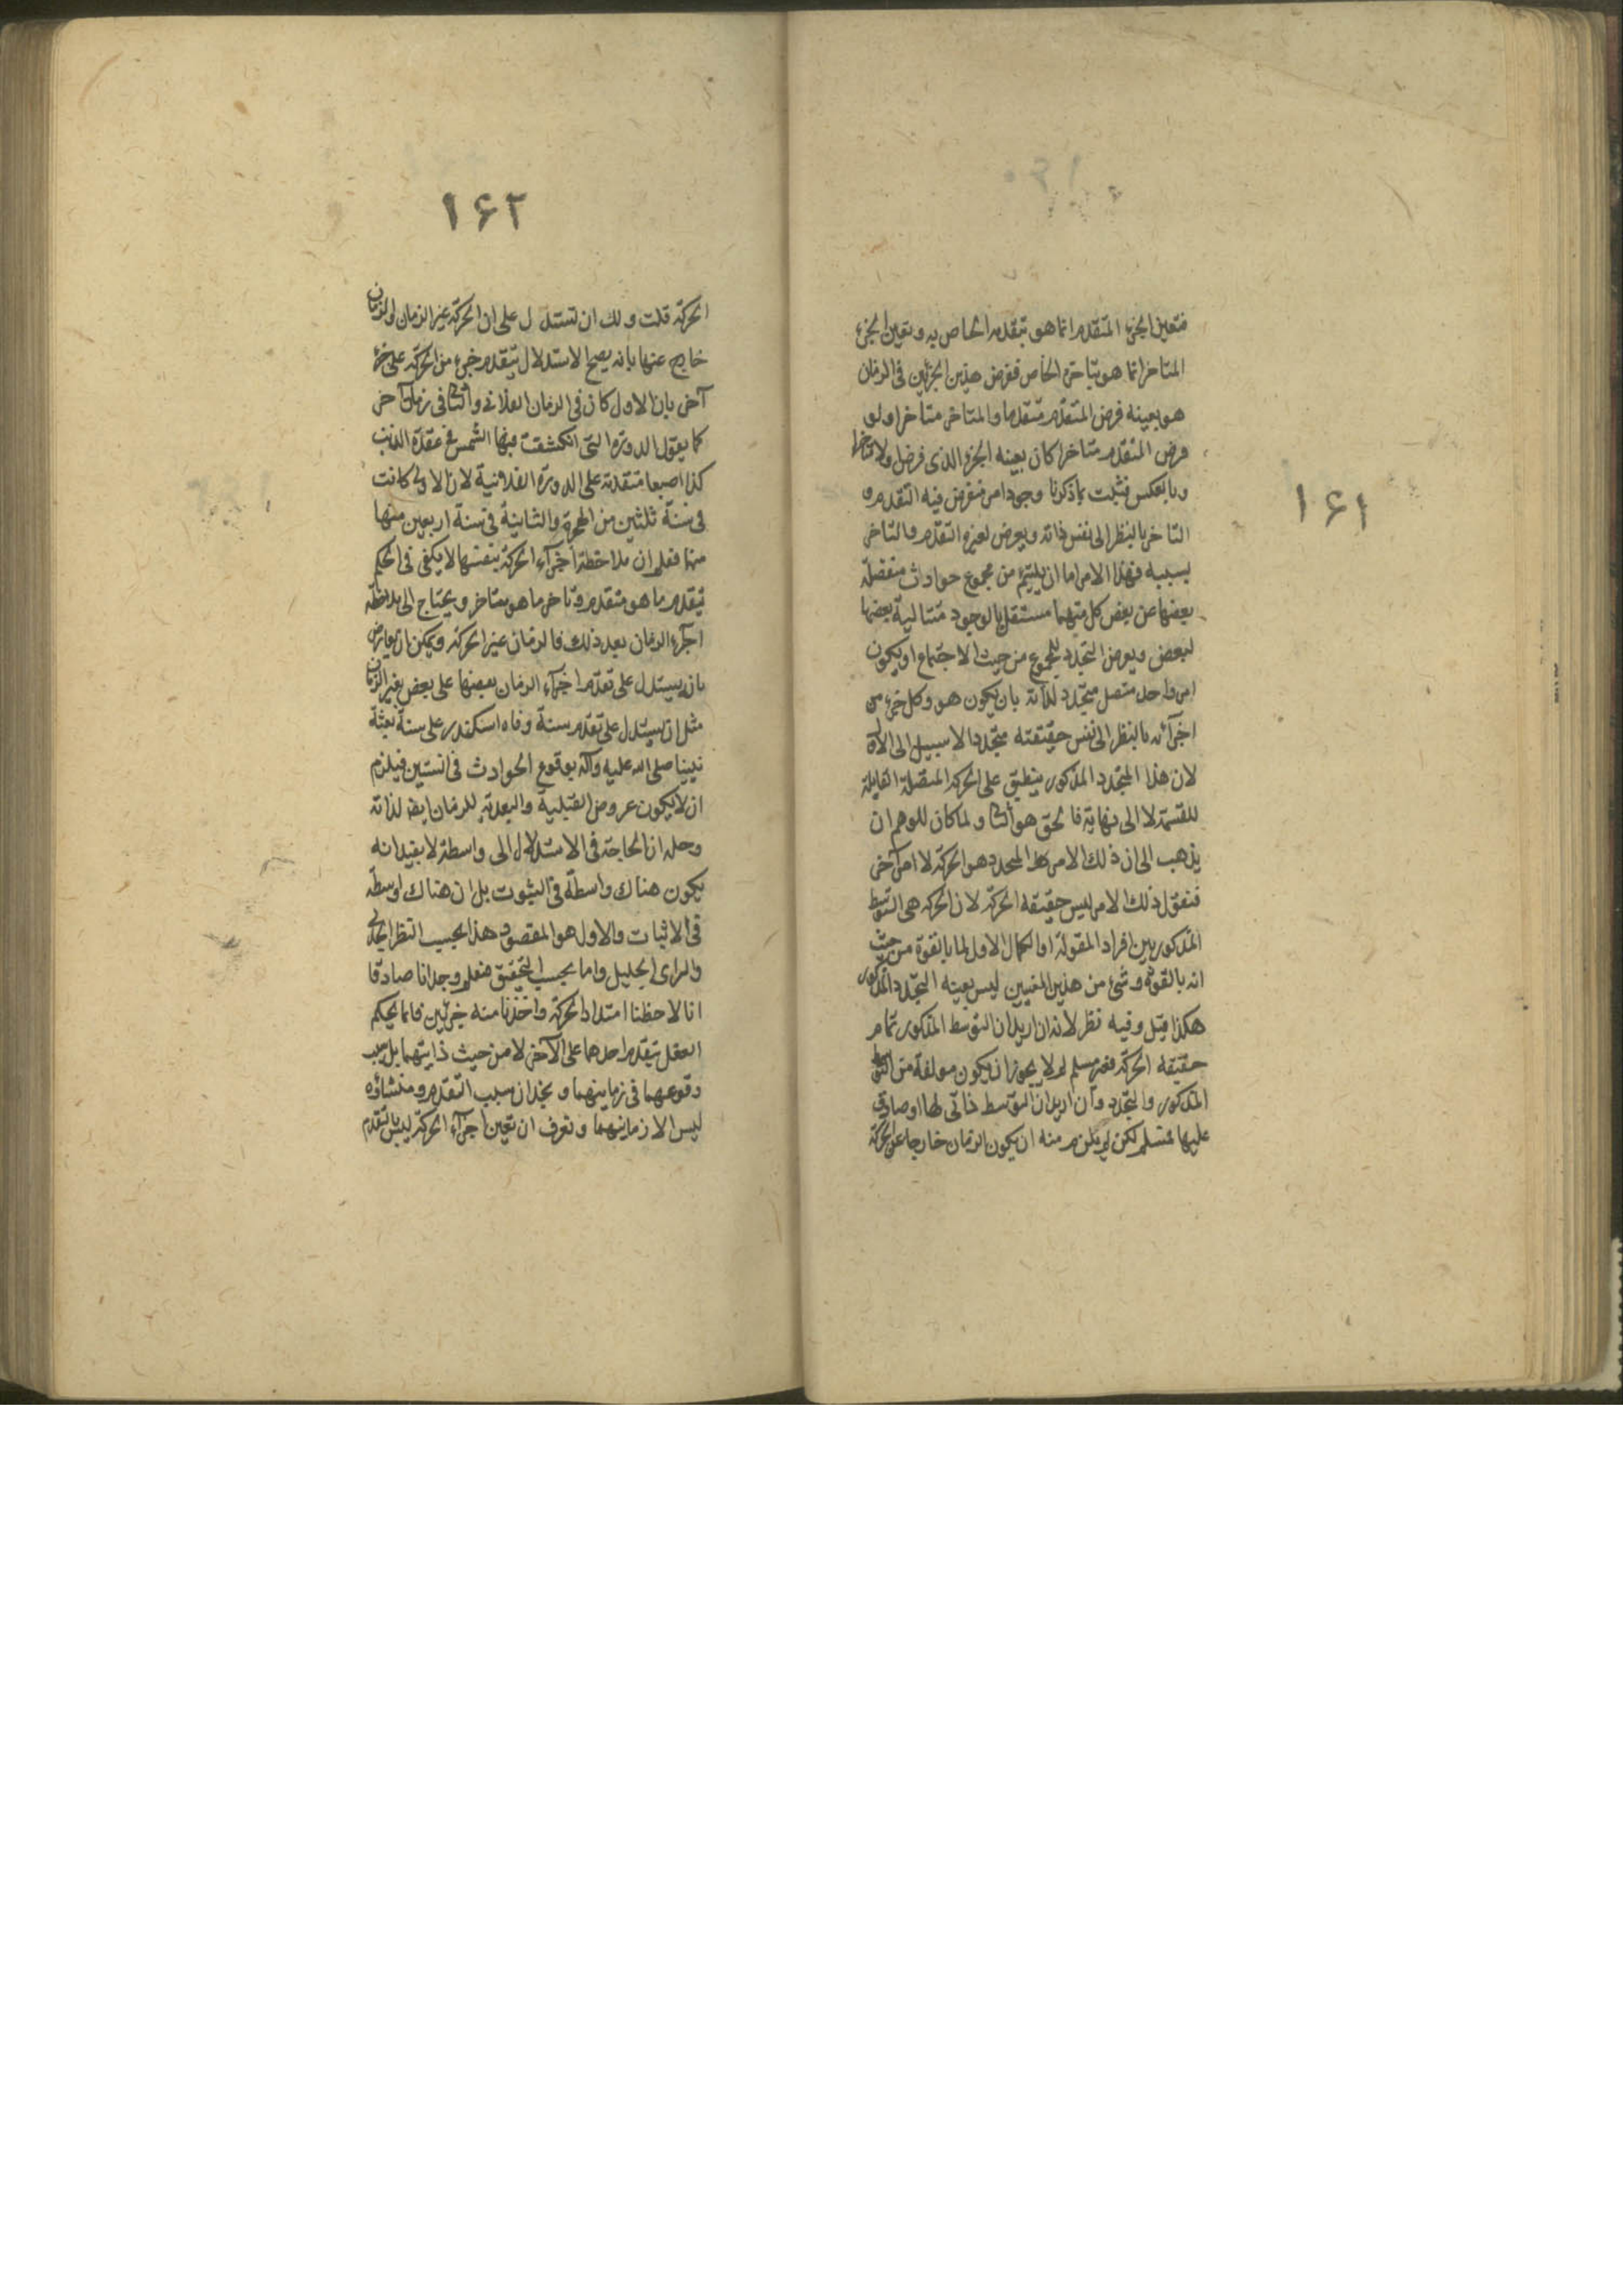 ۱۶۱
فتعين الجزء المتقدم انما هو بتقدمه الخاص به وتعين الجزء
المتاخر انما هو بتاخره الخاص ففرض هذين الجزئين فى الزمان
هو بعينه فرض المتقدم متقدما والمتاخر متاخرا ولو
فرض المتقدم متاخرا كان بعينه الجزء الذى فرض اولا متاخرا
وبالعكس فثبت بما ذكرنا وجود امر نفرض فيه التقدم و
التاخر بالنظر الى نفس ذاته ويعرض لغيره التقدم والتاخر
بسببه فهذا الامر اما ان يلتئم من مجموع حوادث منفصلة
بعضها عن بعض كل منهما مستقل بالوجود متتالية بعضها
لبعض ويعرض التجدد للمجموع من حيث الاجتماع او يكون
امر واحد متصل متجدد لذاته بان يكون هو وكل جزء من
اجزائه بالنظر الى نفس حقيقته متجددا لا سبيل الى الاول
لان هذا المتجدد المذكور ينطبق على الحركة المتصلة القابلة
للقسمة لا الى نهاية فالحق هو الثانى ولما كان للوهم ان
يذهب الى ان ذلك الامر المتجدد هو الحركة لا امر آخر
فنقول ذلك الامر ليس حقيقة الحركة لان الحركة هى التوسط
المذكور بين افراد المقولة او الكمال الاول لما بالقوة من حيث
انه بالقوة وشئ من هذين المعنيين ليس بعينه التجدد المذكور
هكذا قيل وفيه نظر لانه ان اريد ان التوسط المذكور تمام
حقيقة الحركة فغير مسلم لم لا يجوز ان يكون مولفة من التوسط
المذكور والتجدد وان اريد ان التوسط ذاتى لها او صادق
عليها فمسلم لكن لم يلزم منه ان يكون الزمان خارجا عن الحركة
۱۶۲
الحركة قلت ولك ان تستدل على ان الحركة غير الزمان والزمان
خارج عنها بانه يصح الاستدلال بتقدم جزء من الحركة على جزء
آخر بان الاول كان فى الزمان الفلانى والثانى فى زمان آخر
كما يقول الدورة التى انكشفت فيها الشمس فى عقدة الذنب
كذا اصبعا متقدمة على الدورة الفلانية لان الاولى كانت
فى سنة ثلثين من الهجرة والثانية فى سنة اربعين منها
منها فعلم ان ملاحظة اجزاء الحركة بنفسها لا يكفى فى الحكم
بتقدم ما هو متقدم وتاخر ما هو متاخر ويحتاج الى ملاحظة
اجزاء الزمان بعد ذلك فالزمان غير الحركة ويمكن ان يعارض
بانه يستدل على تقدم اجزاء الزمان بعضها على بعض بغير الزمان
مثل ان يستدل على تقدم سنة وفاه اسكندر على سنة بعثة
نبينا صلى الله عليه وآله بوقوع الحوادث فى السنتين فيلزم
ان لا يكون عروض القبلية والبعدية للزمان ايضا لذاته
وحله ان الحاجة فى الاستدلال الى واسطة لا يفيد انه
يكون هناك واسطة فى الثبوت بل ان هناك واسطة
فى الاثبات والاول هو المقصود هذا بحسب النظر الجدلى
والراى الجليل واما بحسب التحقيق فنعلم وجدانا صادقا
انا لاحظنا امتداد الحركة واخذنا منه جزئين فانما يحكم
العقل بتقدم احدهما على الآخر لا من حيث ذايتهما بل بسبب
وقوعهما فى زمانيهما ونجد ان سبب التقدم ومنشاؤه
ليس الا زمانيهما ونعرف ان تعين اجزاء الحركة ليس بالتقدم